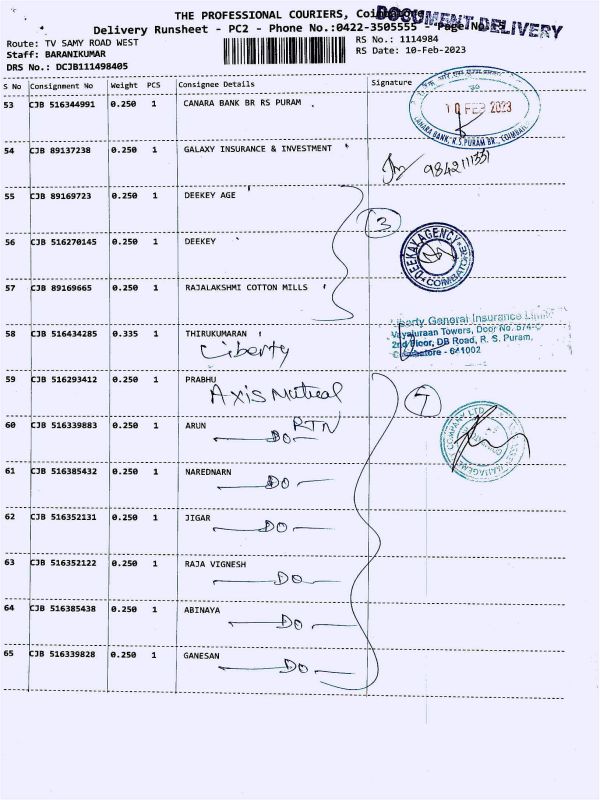 THE PROFESSIONAL COURIERS,
DOCUMENT DELIVERY
Delivery Runsheet - PC2 - Phone No.:0422-3505555 - Page No.
Route: TV SAMY ROAD WEST
RS No.: 1114984
Staff: BARANIKUMAR
RS Date: 10-Feb-2023
DRS No.: DCJB111498405
S No Consignment No Weight PCS Consignee Details Signature
53 CJB 516344991 0.250 1 CANARA BANK BR RS PURAM
10 FEB 2023
CANARA BANK, R.S.PURAM BR.,
54 CJB 89137238 0.250 1 GALAXY INSURANCE & INVESTMENT
55 CJB 89169723 0.250 1 DEEKEY AGE
3
56 CJB 516270145 0.250 1 DEEKEY
DEEKAY AGENCY
COIMBATORE
57 CJB 89169665 0.250 1 RAJALAKSHMI COTTON MILLS
58 CJB 516434285 0.335 1 THIRUKUMARAN
Liberty
Liberty General Insurance
Vayaluraan Towers, Door No. 574-C
2nd Floor, DB Road, R. S. Puram,
Coimbatore - 641002
59 CJB 516293412 0.250 1 PRABHU
Axis Mutual
7
60 CJB 516339883 0.250 1 ARUN
RTN
DO
61 CJB 516385432 0.250 1 NAREDNARN
DO
62 CJB 516352131 0.250 1 JIGAR
DO
63 CJB 516352122 0.250 1 RAJA VIGNESH
DO
64 CJB 516385438 0.250 1 ABINAYA
DO
65 CJB 516339828 0.250 1 GANESAN
DO